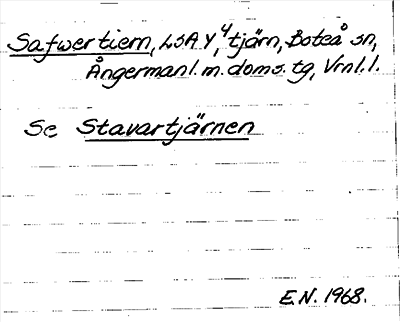 Safwertiern, LSA Y, 4 tjärn, Boteå sn,
Ångermanl. m. doms. tg, Vrnl. l.
Se Stavartjärnen
E.N. 1968.